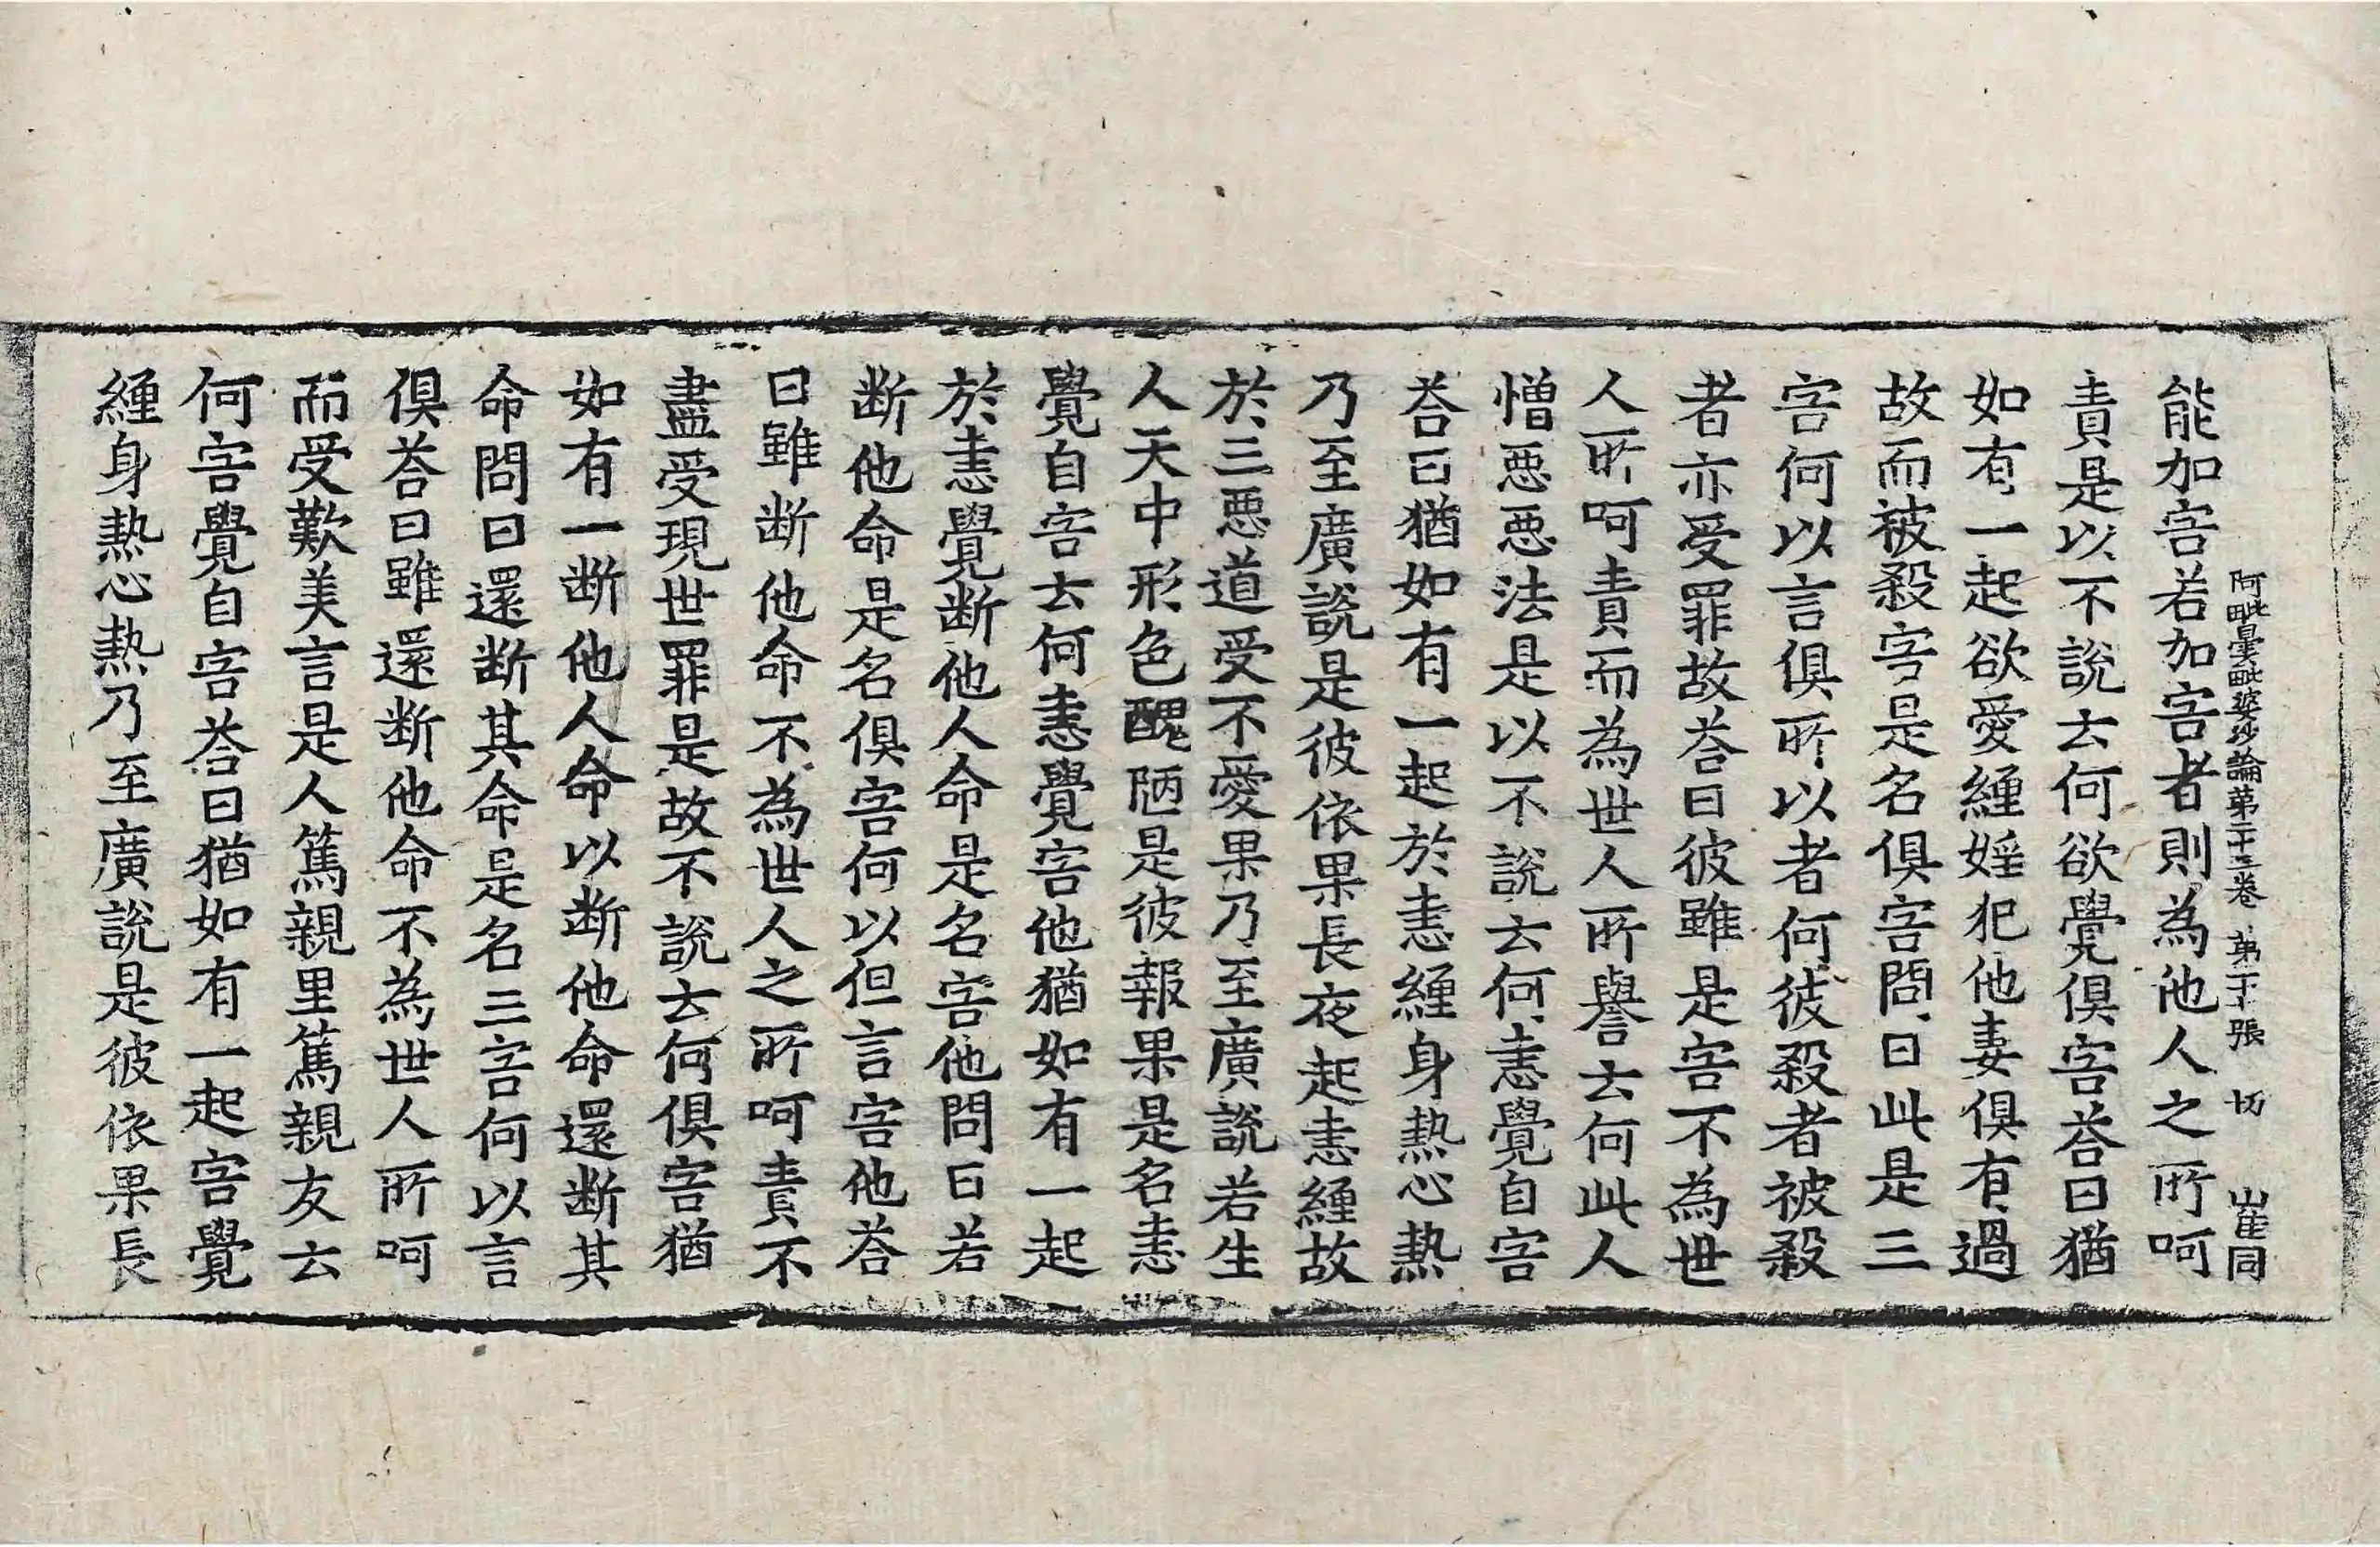 阿毗曇毗婆沙論第二十三卷 第二十張 切 崔同
能加害若加害者則為他人之所呵
責是以不說云何欲覺俱害荅曰猶
如有一起欲愛纏婬犯他妻俱有過
故而被殺害是名俱害問曰此是三
害何以言俱所以者何彼殺者被殺
者亦受罪故荅曰彼雖是害不為世
人所呵責而為世人所譽云何此人
憎惡惡法是以不說云何恚覺自害
荅曰猶如有一起於恚纏身熱心熱
乃至廣說是彼依果長夜起恚纏故
於三惡道受不愛果乃至廣說若生
人天中形色醜陋是彼報果是名恚
覺自害云何恚覺害他猶如有一起
於恚覺断他人命是名害他問曰若
断他命是名俱害何以但言害他荅
曰雖断他命不為世人之所呵責不
盡受現世罪是故不說云何俱害猶
如有一断他人命以断他命還断其
命問曰還断其命是名三害何以言
俱荅曰雖還断他命不為世人所呵
而受歎美言是人篤親里篤親友云
何害覺自害荅曰猶如有一起害覺
纏身熱心熱乃至廣說是彼依果長